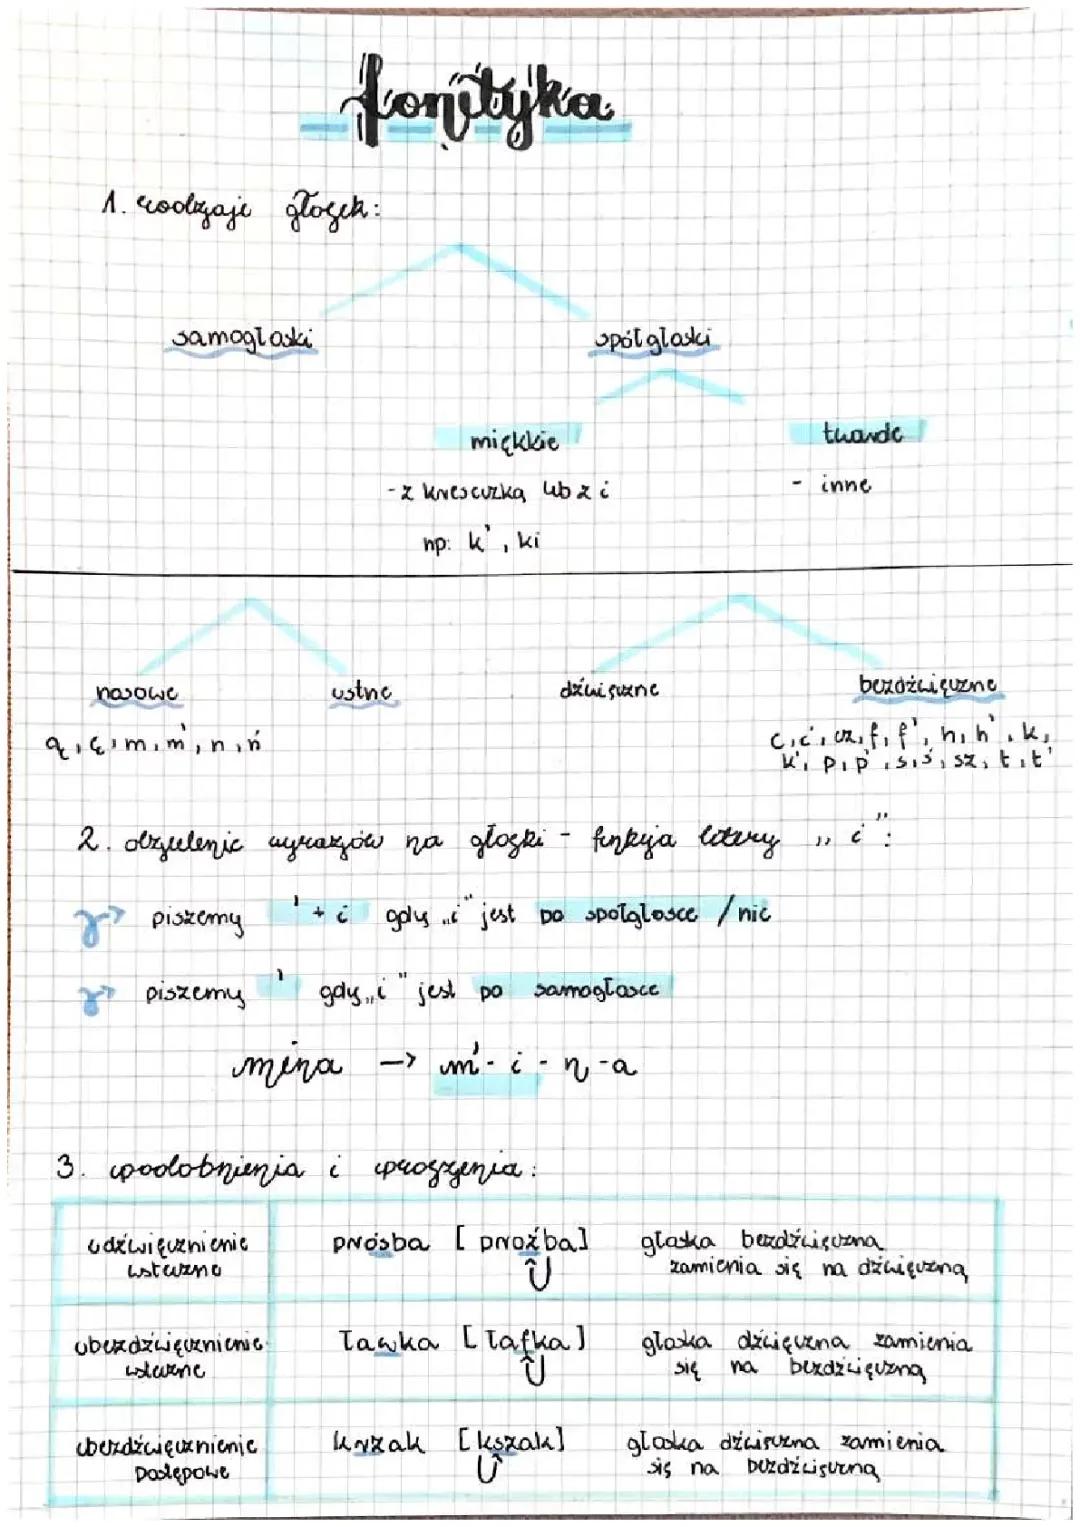 fonetyka
1. rodzaje głosek:
samogłoski spółgłoski
miękkie twarde
- z kreseczką lub z i - inne
np: k', ki
nosowe ustne dźwięczne bezdźwięczne
ą, ę, m, m', n, ń c, ć, cz, f, f', h, h', k,
k', p, p', s, ś, sz, t, t'
2. dzielenie wyrazów na głoski - funkcja litery „i":
piszemy ' + i gdy „i" jest po spółgłosce / nic
piszemy ' gdy „i" jest po samogłosce
mina -> m' - i - n - a
3. upodobnienia i uproszczenia:
udźwięcznienie prośba [proźba] głoska bezdźwięczna
wsteczne zamienia się na dźwięczną
ubezdźwięcznienie ławka [łafka] głoska dźwięczna zamienia
wsteczne się na bezdźwięczną
ubezdźwięcznienie krzak [kszak] głoska dźwięczna zamienia
postępowe się na bezdźwięczną